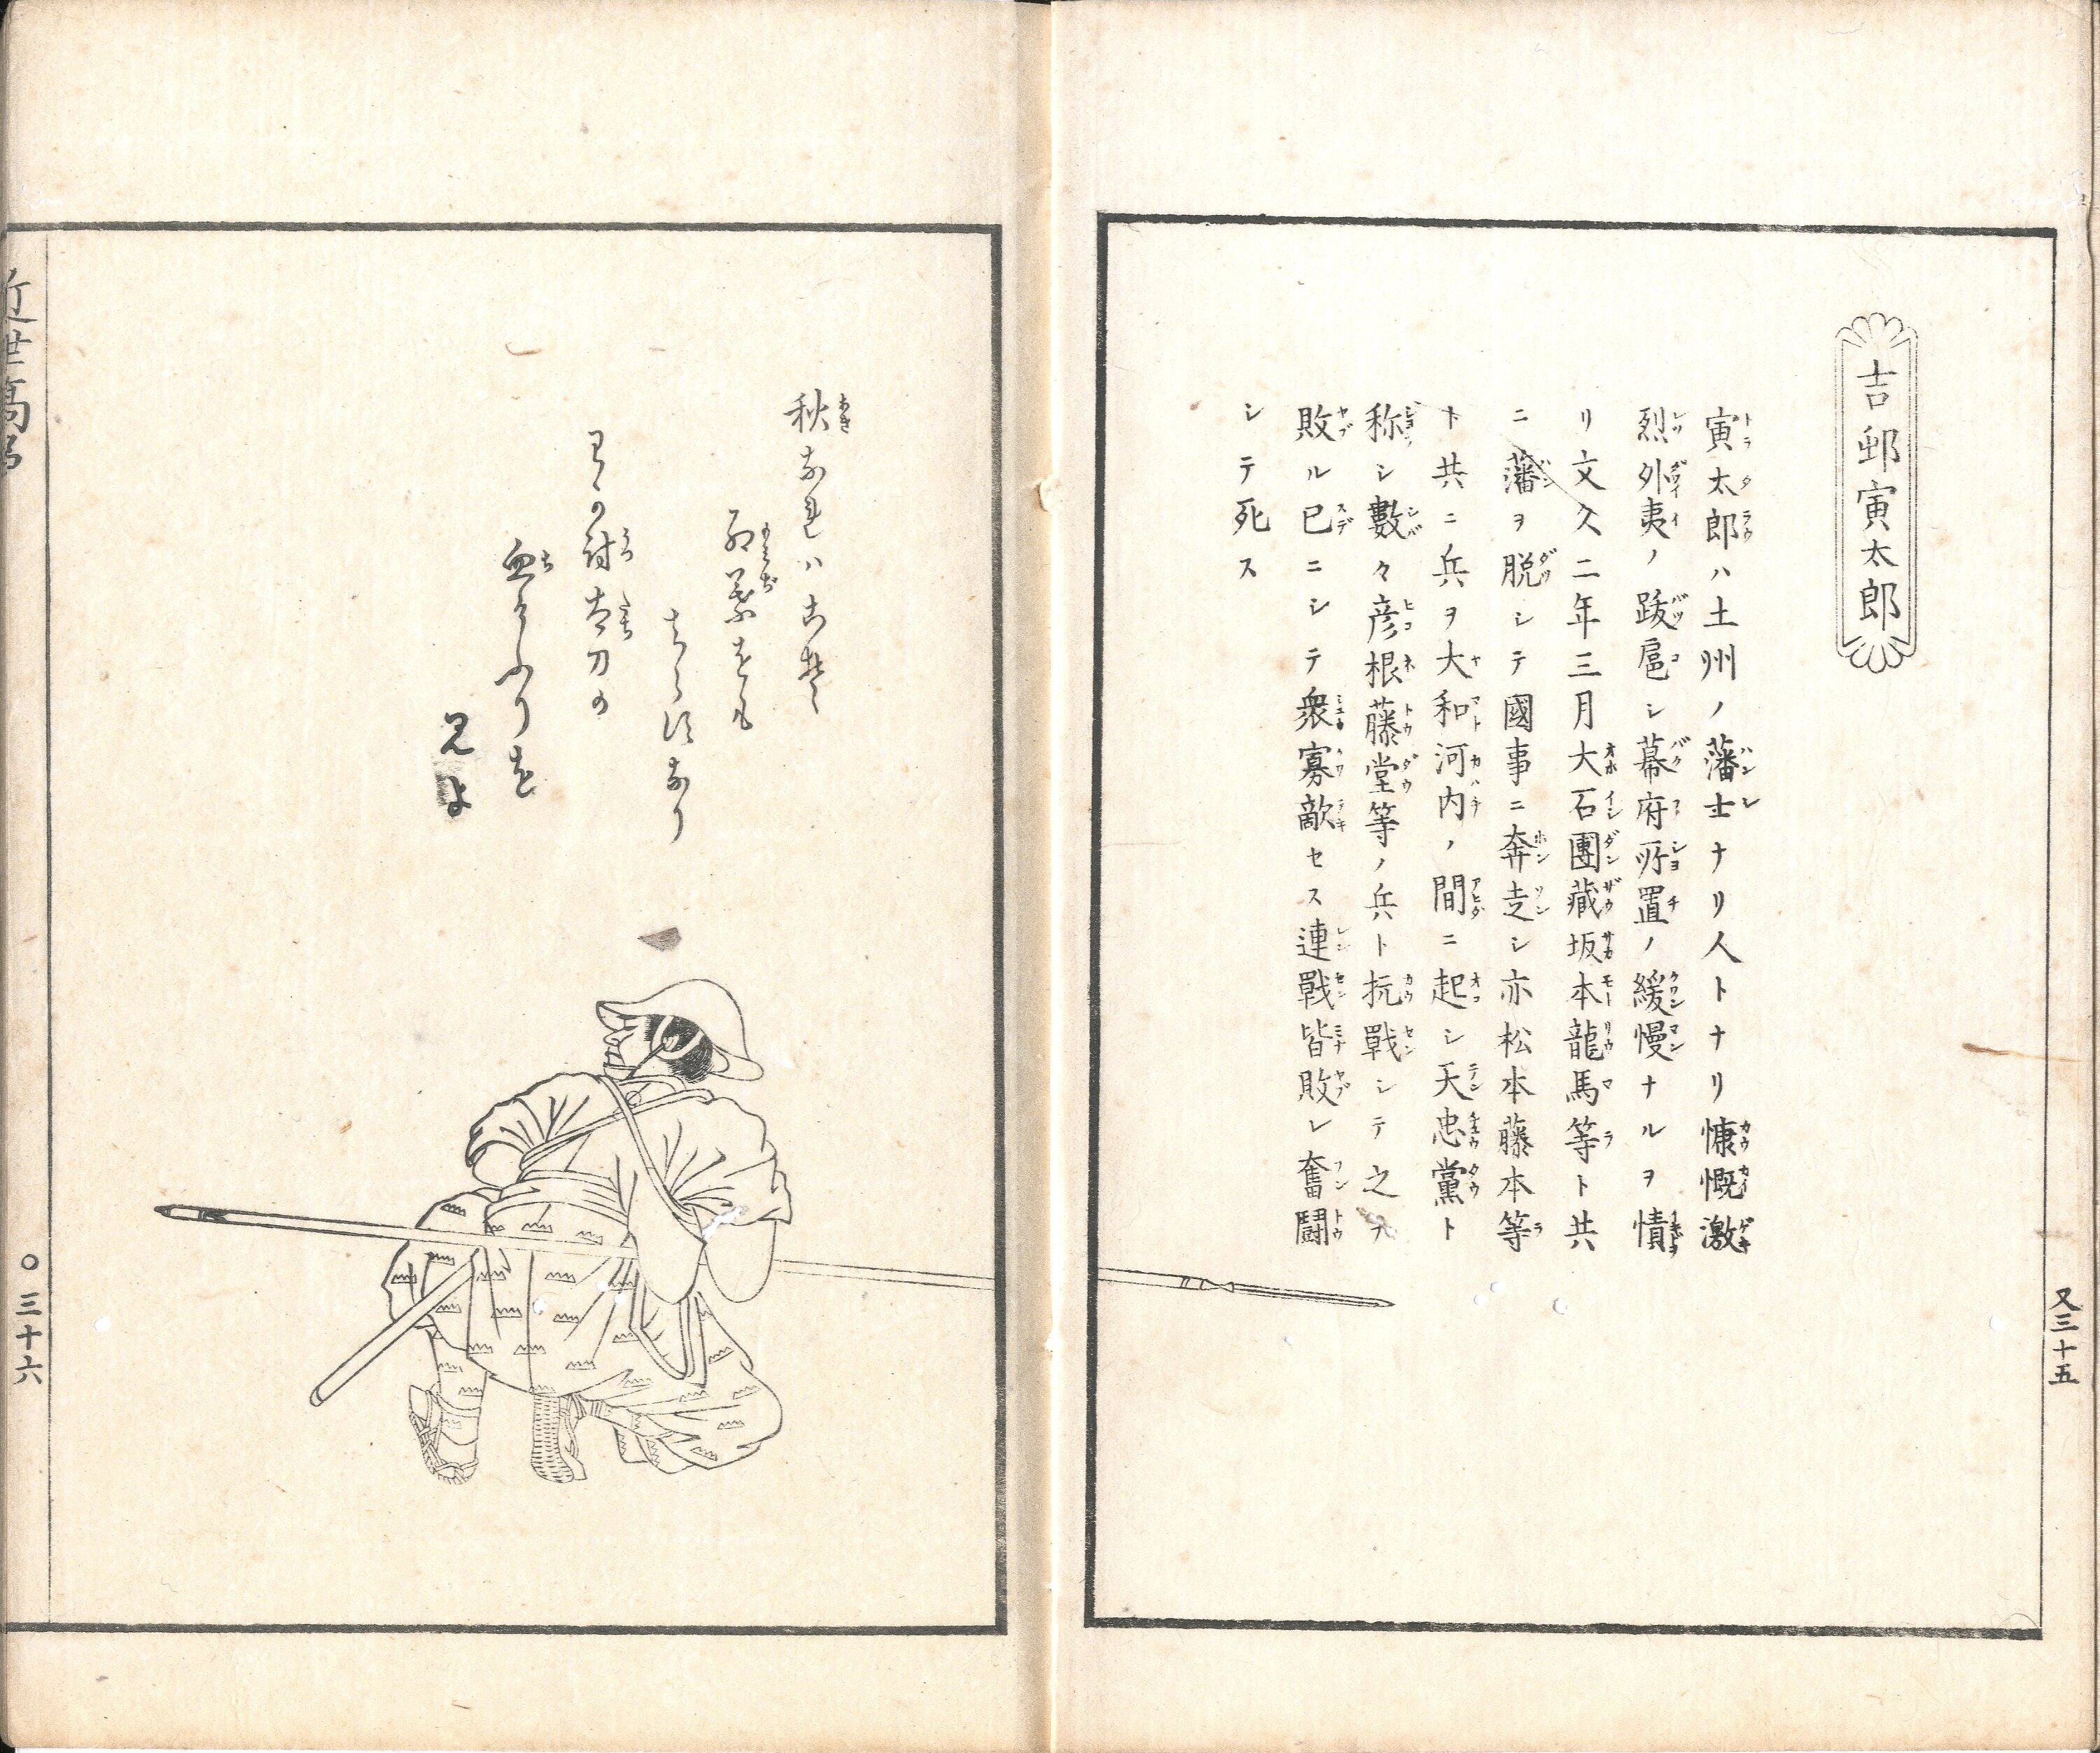 吉邨寅太郎
寅太郎ハ土州ノ藩士ナリ人トナリ慷慨激
烈外夷ノ跋扈シ幕府所置ノ緩慢ナルヲ憤
リ文久二年三月大石團藏坂本龍馬等ト共
ニ藩ヲ脱シテ國事ニ奔走シ亦松本藤本等
ト共ニ兵ヲ大和河内ノ間ニ起シ天忠黨ト
称シ數々彦根藤堂等ノ兵ト抗戰シテ之ヲ
敗ル已ニシテ衆寡敵セス連戰皆敗レ奮鬪
シテ死ス
又三十五
秋なれハこそ
紅葉をも
ちらすなり
わか討太刀の
血けふりを
見よ
近世高名
〇三十六